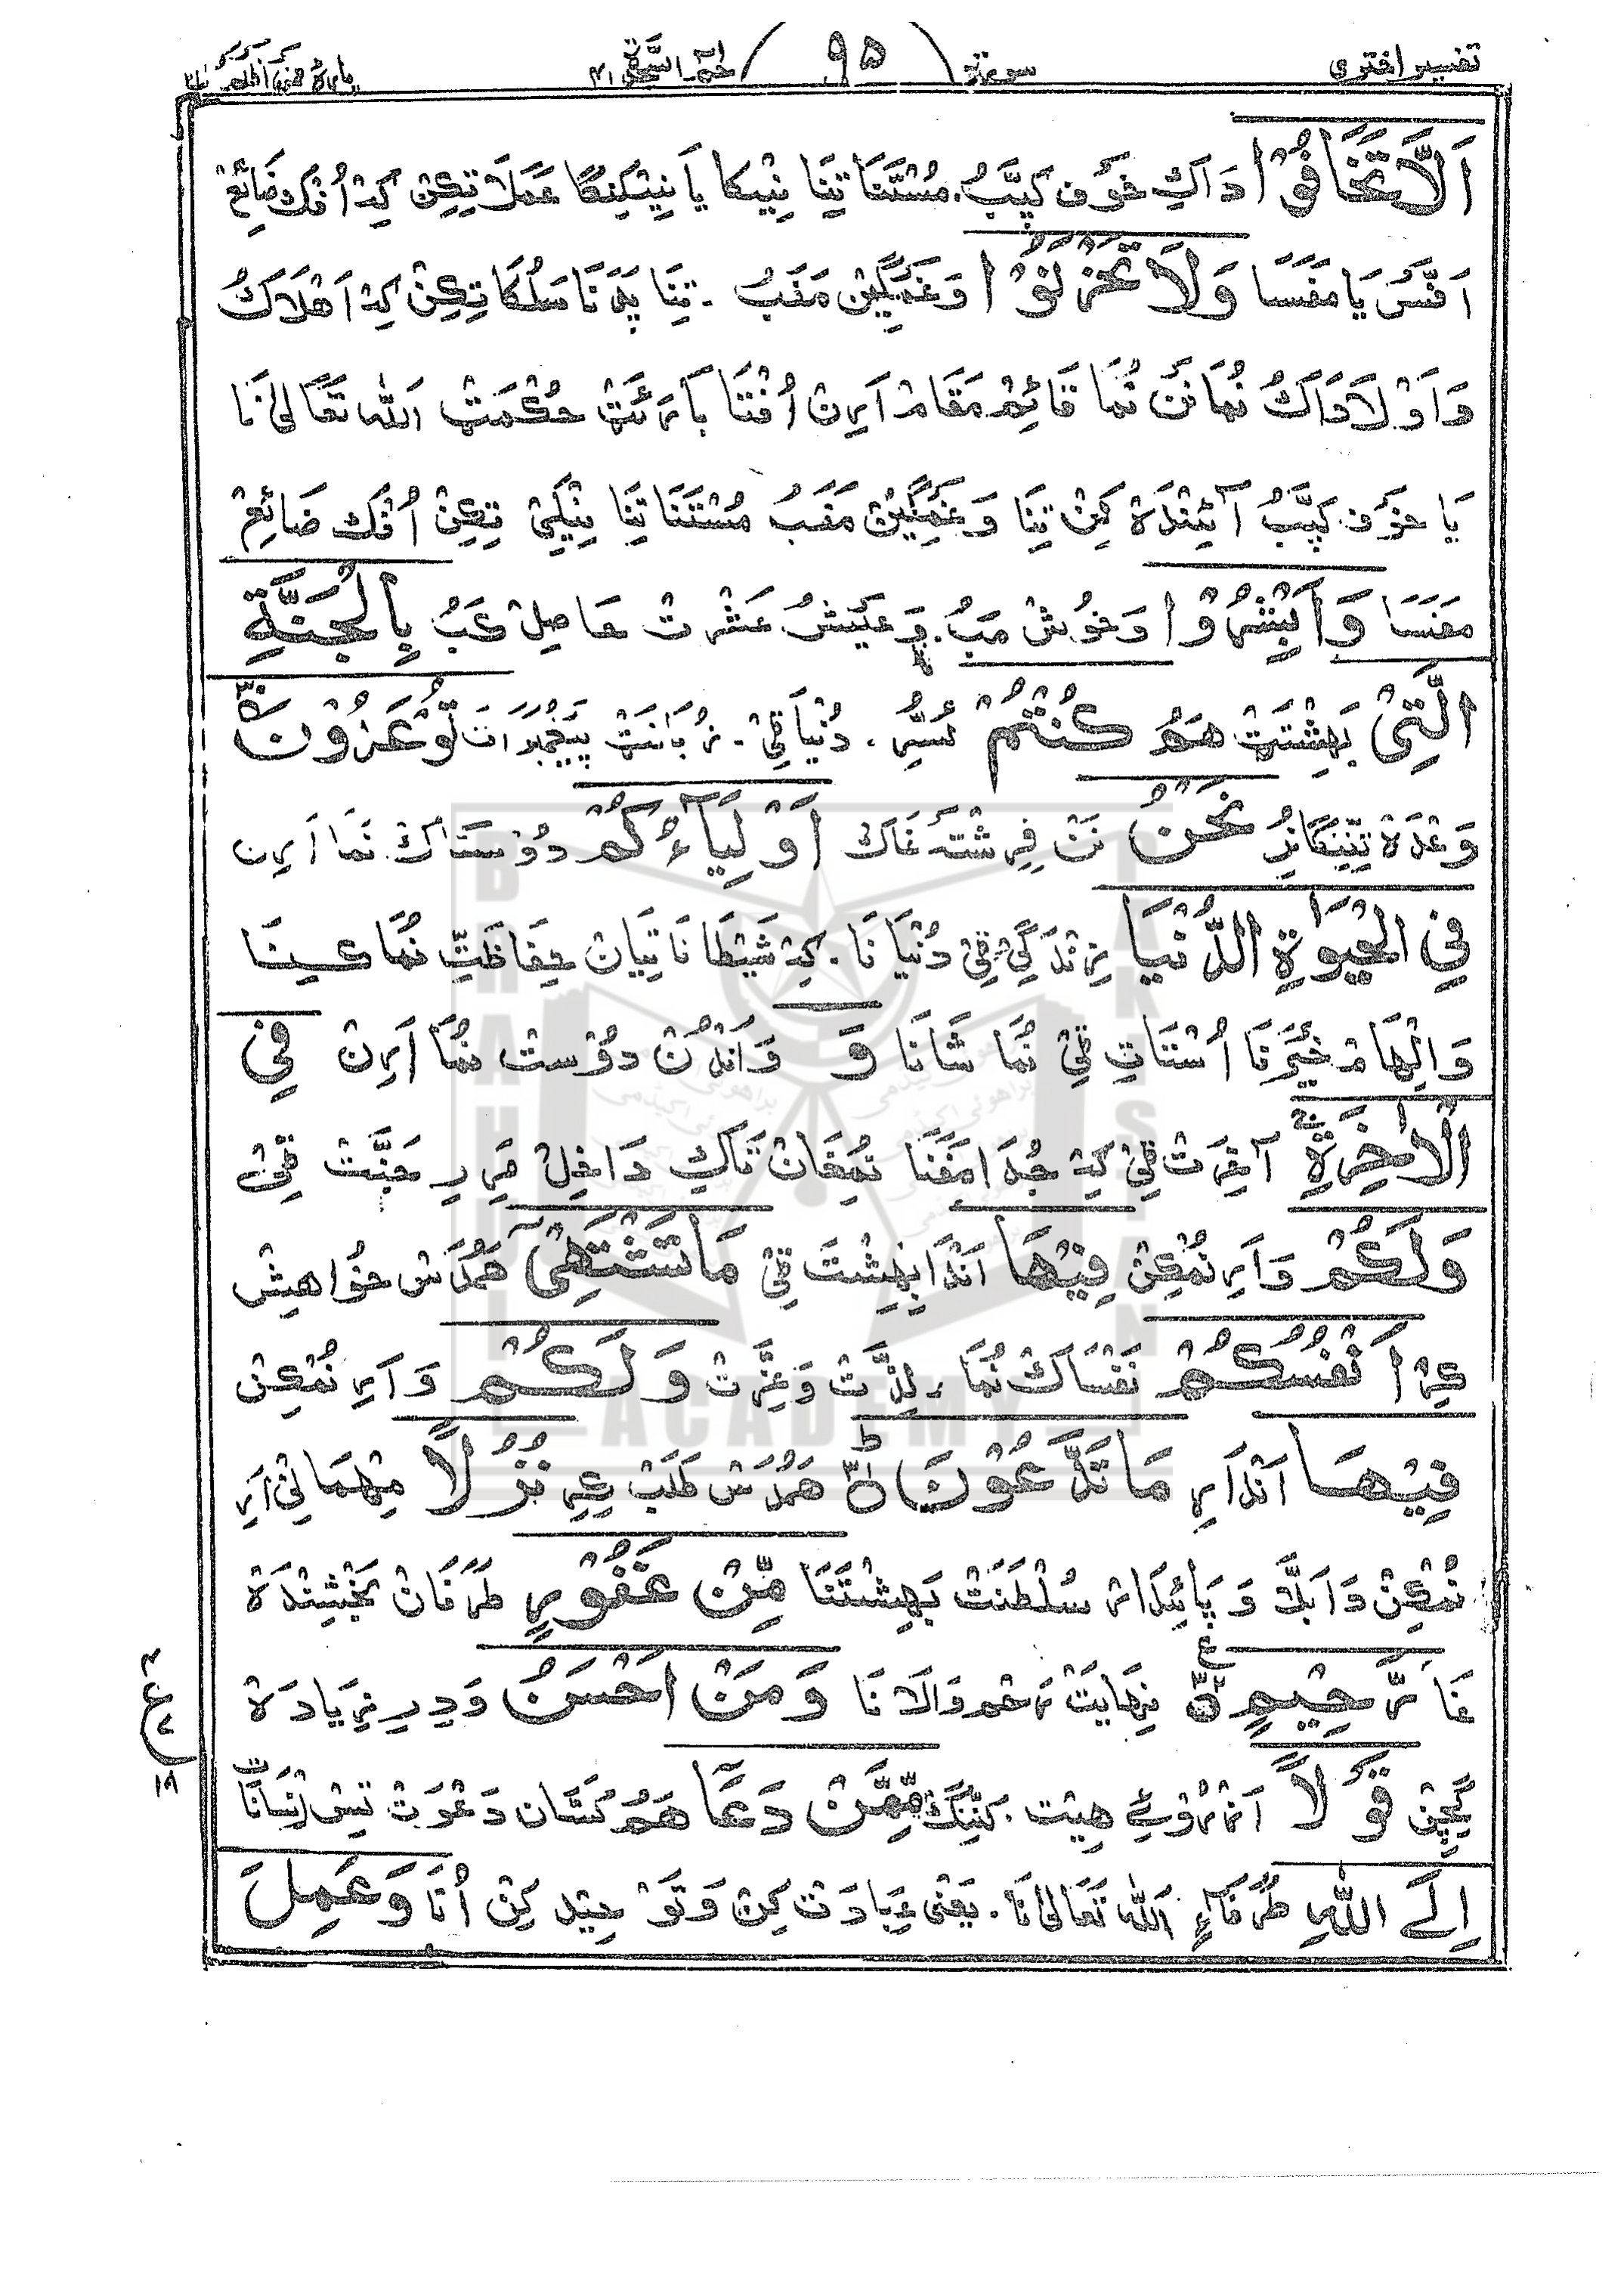 تفسیر اختری سورة ( ۹۵ ) حٰمٓ السَّجْدَة ۴۱ پارہ فمن اظلم ۲۴
اَلَّا تَخَافُوْا دَاکِ خَوْف کَپَّبُ۔ مُسْتَنَا تِنَا نِیْکا یَا نِیْکِنگا عَمَلاَ تِکِنْ کِہْ اُفْک ضَائِعْ
اَفَّسُ یَا مَفَسَا وَلَا تَحْزَنُوْا وَغَمْگِیْن مَفَبُ ۔ تِنَا پَدْنَا سَلْکَا تِکِنْ کِہْ اَهْلَاکُ
وَاَوْلَادَاکُ نُمَا نَنْ نُمَا قَائِمْ مَقَامْ اَرِن اُفْتَا بَارَئَتْ حُکْمَتْ اَللّٰه تَعَالیٰ نَا
یَا خَوْف کَپَّبُ آئِنْدَہ کِنْ تِنَا وَغَمْگِیْنْ مَفَبُ مُسْتَنَا تِنَا نِیْکِیْ تِکِنْ اُفْک ضَائِعْ
مَفَسَا وَاَبْشِرُوْا وَخُوْش مَبُ۔ وَعَیْش عَشْرَتْ حَاصِلْ کَبُ بِالْجَنَّةِ
الَّتِیْ بَهِشْتَتْ هَمُ كُنْتُمْ ئَسُرِ ۔ دُنْیَا ٹِیْ ۔ زُبَانَتْ پَیْغَمْبَرَاتَ تُوْعَدُوْنَ ۳۰
وَعْدَہ تِنِنْگَارُ نَحْنُ نَنْ فِرِشْتَہ غَاک اَوْلِیَآءُكُمْ دُوْسَتَاکْ نُمَا اَرِن
فِی الْحَیٰوةِ الدُّنْیَا زِنْدَگِیْ ٹِیْ دُنْیَا نَا ۔ کِہْ شَیْطَا نَا تِیَانْ حِفَاظَتِ نُمَا کِیْنَا
وَاِلْهَامْ خَیْرْ نَا اُسْتَاتِ ٹِیْ نُمَا شَانَا وَ وَاَنْدُنْ دُوْسْت نُمَا اَرِنْ فِی
الْاٰخِرَةِ آخِرَتْ ٹِیْ کِہْ جُدَا مَفَنَا نُمِفَانْ تَاکِ دَاخِلْ مَرِرِ جَنَّتْ ٹِیْ
وَلَكُمْ وَاَرِ نُمْکِنْ فِیْهَا اَنْدَا بِهِشْتَ ٹِیْ مَا تَشْتَهِیْٓ هَمُدَسْ خُوَاهِشْ
کِرِ اَنْفُسُكُمْ نَفْسَاکْ نُمَا ۔ لِذَّتْ وَعِزَّتْ وَلَكُمْ وَاَرِ نُمْکِنْ
فِیْهَا اَنْدَا اَرِ مَا تَدَّعُوْنَ ۳۱ هَمُدَسْ طَلَبْ کِرِ نُزُلًا مِهْمَانِیْ اَرِ
نُمْکِنْ دَا بَلَّا وَ پَائِدَارْ سُلْطَنَتْ بَهِشْتَنَا مِّنْ غَفُوْرٍ طَرَفَانْ بَخْشِنْدَہ
غَا رَّحِیْمٍ ۳۲ نِهَایَتْ رَحْم وَالَا نَا وَمَنْ اَحْسَنُ وَدِیرِ زِیَادَہ
گِچِنْ قَوْلًا اَزْرُوْئے هِیْت ۔ کَنِنْگ مِّمَّنْ دَعَآ هَمُ کَسَان دَعْوَتْ تِسْ اِنْسَانَا تِ
اِلَے اللّٰهِ طَرَفَاءِ اَللّٰه تَعَالیٰ نَا ۔ یَعْنِی عِبَادَتْ کِنْ وَتَوْحِیْد کِنْ اُنَا وَعَمِلَ
ع
۱۸